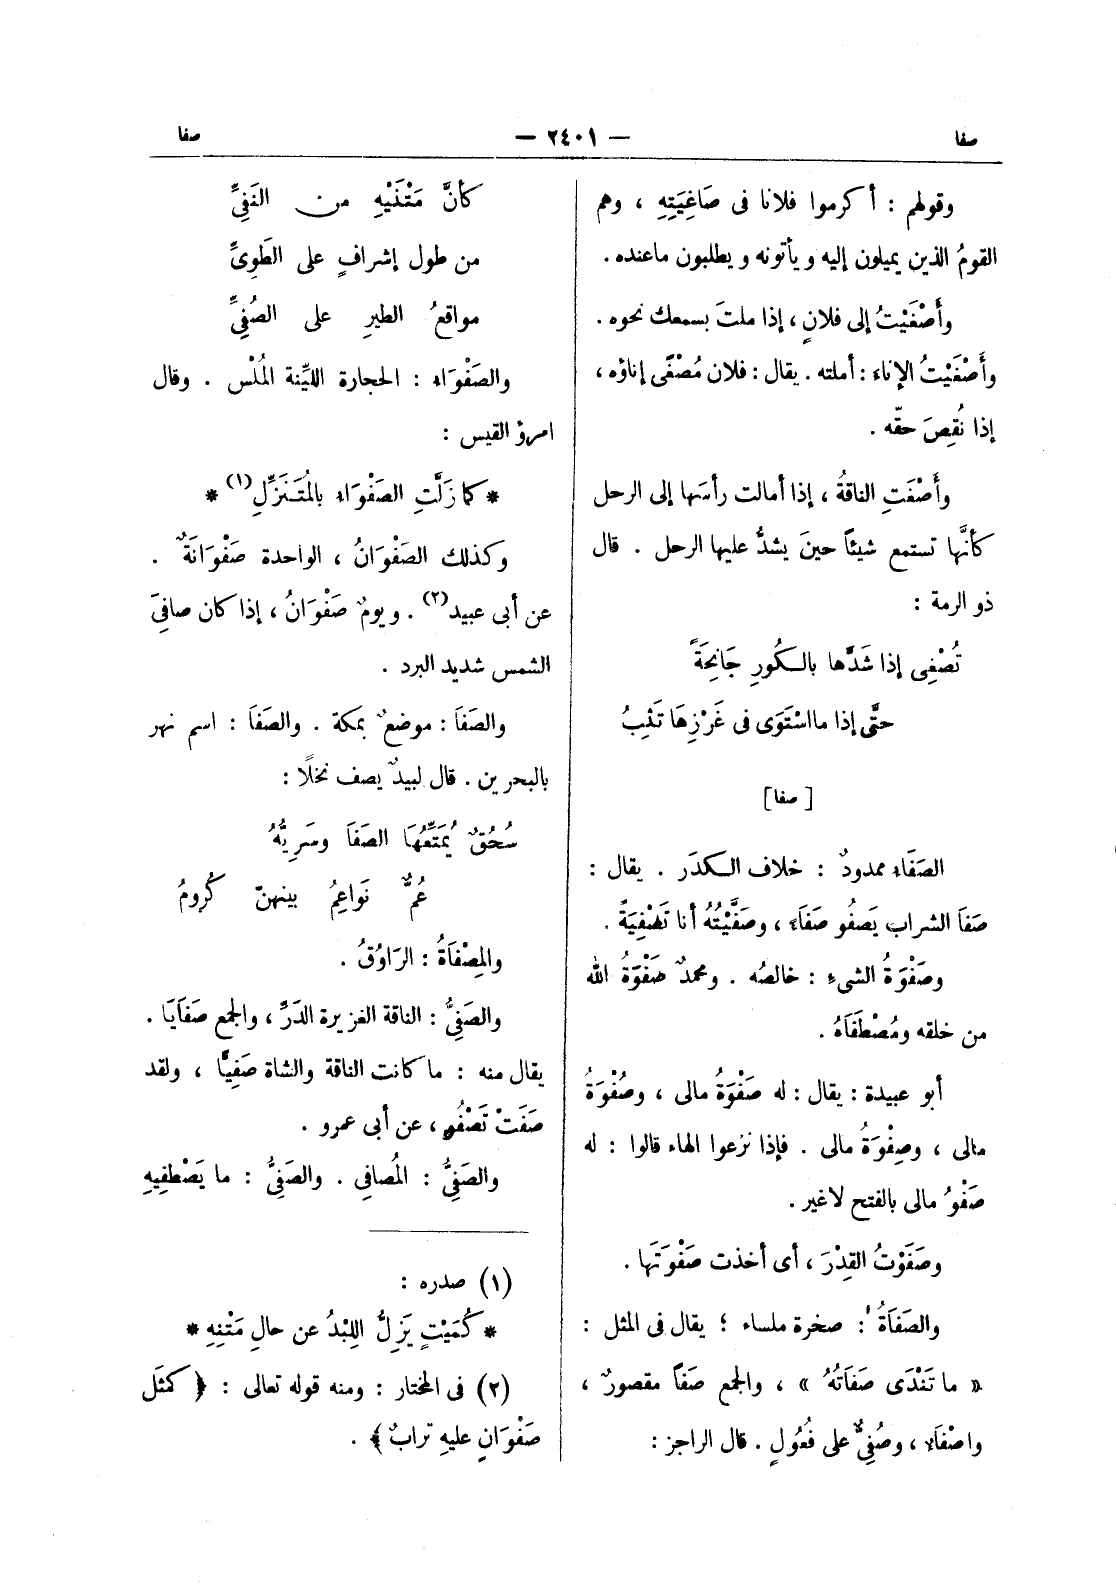 صفا — ٢٤٠١ — صفا
وقولهم : أكرموا فلانا فى صَاغِيَتِهِ ، وهم
القومُ الذين يميلون إليه ويأتونه ويطلبون ماعنده .
وأَصْغَيْتُ إلى فلانٍ ، إذا ملتَ بسمعك نحوه .
وأَصْغَيْتُ الإناء : أملته . يقال : فلان مُصْغًى إناؤه ،
إذا نُقِصَ حقّه .
وأَصْغَتِ الناقةُ ، إذا أمالت رأسَها إلى الرحل
كأنَّها تستمع شيئاً حينَ يشدُّ عليها الرحل . قال
ذو الرمة :
تُصْغِى إذا شَدَّها بالكُورِ جَانِحَةً
حتَّى إذا مااسْتَوَى فى غَرْزِهَا تَثِبُ
[ صفا ]
الصَفَاء ممدودٌ : خلاف الكدَر . يقال :
صَفَا الشراب يَصفُو صَفَاءً ، وصَفَّيْتُهُ أنا تَصْفِيَةً .
وصَفْوَةُ الشىءِ : خالصُه . ومحمدٌ صَفْوَةُ الله
من خلقه ومُصْطَفَاهُ .
أبو عبيدة : يقال : له صَفْوَةُ مالى ، وصُفْوَةُ
مالى ، وصِفْوَةُ مالى . فإذا نزعوا الهاء قالوا : له
صَفْوُ مالى بالفتح لاغير .
وصَفَوْتُ القِدْرَ ، أى أخذت صَفْوَتَها .
والصَفَاةُ : صخرة ملساء ؛ يقال فى المثل :
« ما تَنْدَى صَفَاتُهُ » ، والجمع صَفاً مقصورٌ ،
واصْفَاء ، وصُفِىٌّ على فُعُولٍ . قال الراجز :
كأنَّ مَتْنَيْهِ من النَفِىِّ
من طول إشرافٍ على الطَوِىِّ
مواقعُ الطيرِ على الصُفِىِّ
والصَفْوَاء : الحجارة الليِّنة المُلْس . وقال
امرؤ القيس :
* كما زَلَّتِ الصَفْوَاء بالمُتَنَزِّلِ (١) *
وكذلك الصَفْوَانُ ، الواحدة صَفْوَانَةٌ .
عن أبى عبيد (٢) . ويومٌ صَفْوَانُ ، إذا كان صافِىَ
الشمس شديد البرد .
والصَفَا : موضعٌ بمكة . والصَفَا : اسم نهر
بالبحرين . قال لبيدٌ يصف نخلًا :
سُحُقٌ يُمَتِّعُهَا الصَفَا وسَرِيُّهُ
عُمٌّ نَوَاعِمُ بينهنّ كُرُومُ
والمِصْفَاةُ : الرَاوُقُ .
والصَفِىُّ : الناقة الغزيرة الدَرِّ ، والجمع صَفَايَا .
يقال منه : ما كانت الناقة والشاة صَفِيًّا ، ولقد
صَفَتْ تَصْفُو ، عن أبى عمرو .
والصَفِىُّ : المُصافِى . والصَفِىُّ : ما يَصْطفِيهِ
(١) صدره :
* كُمَيْتٍ يَزِلُّ اللِبْدُ عن حالِ مَتْنِهِ *
(٢) فى المختار : ومنه قوله تعالى : ﴿ كمثَلِ
صَفْوَانٍ عليهِ ترابٌ ﴾ .